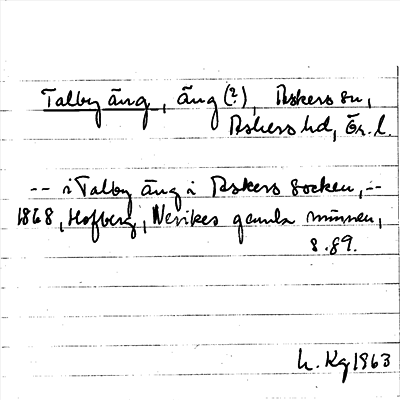 Talby äng, äng (?), Askers sn,
Askers hd, Ör. l.
-- i Talby äng i Askers socken, --
1868, Hofberg, Nerikes gamla minnen,
s. 89.
L. Kg 1963